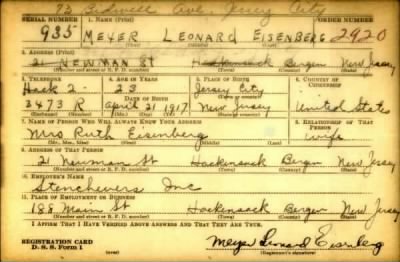 73 Bidwell Ave. Jersey City
SERIAL NUMBER 1. NAME (Print) ORDER NUMBER
935 MEYER LEONARD EISENBERG 2920
(First) (Middle) (Last)
2. ADDRESS (Print)
21 NEWMAN St Hackensack Bergen New Jersey
(Number and street or R. F. D. number) (Town) (County) (State)
3. TELEPHONE 4. AGE IN YEARS 5. PLACE OF BIRTH 6. COUNTRY OF CITIZENSHIP
Hack 2- 23 Jersey City
DATE OF BIRTH
3473 R April 21 1917 New Jersey United States
(Exchange) (Number) (Mo.) (Day) (Yr.) (State or country)
7. NAME OF PERSON WHO WILL ALWAYS KNOW YOUR ADDRESS 8. RELATIONSHIP OF THAT PERSON
Mrs Ruth Eisenberg wife
(Mr., Mrs., Miss) (First) (Middle) (Last)
9. ADDRESS OF THAT PERSON
21 Newman St Hackensack Bergen New Jersey
(Number and street or R. F. D. number) (Town) (County) (State)
10. EMPLOYER'S NAME
Stenchevers Inc
11. PLACE OF EMPLOYMENT OR BUSINESS
188 Main St Hackensack Bergen New Jersey
(Number and street or R. F. D. number) (Town) (County) (State)
I AFFIRM THAT I HAVE VERIFIED ABOVE ANSWERS AND THAT THEY ARE TRUE.
REGISTRATION CARD
D. S. S. Form 1
Meyer Leonard Eisenberg
(Registrant's signature)